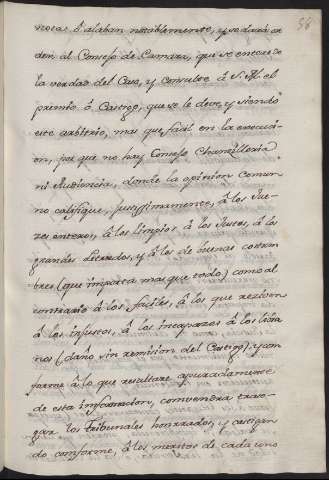 56
notas ó alaban notablemente, y se dará or
den al Consejo de Camara, que se entere de
la verdad del Caso, y Consulte á S. M. el
premio ó Castigo, que se le deve, y siendo
este arbitrio, mas que facil en la execuci-
on, por que no hay Consejo Chanzilleria
ni Audiencia, donde la opinion Comun
no califique, justissimamente, á los Jue-
zes enteros, á los limpios á los Justos, á los
grandes Letrados, y á los de buenas costum
bres, (que importa mas que todo) como al
contrario á los faciles, á los que reziven
á los injustos, á los incapazes á los livia
nos (daño sin remision del Castigo) y con
forme á lo que resultare apuradamente
de esta informacion, convendrá tra
gar los Tribunales honrrados, y castigan
do conforme, á los meritos de cada uno